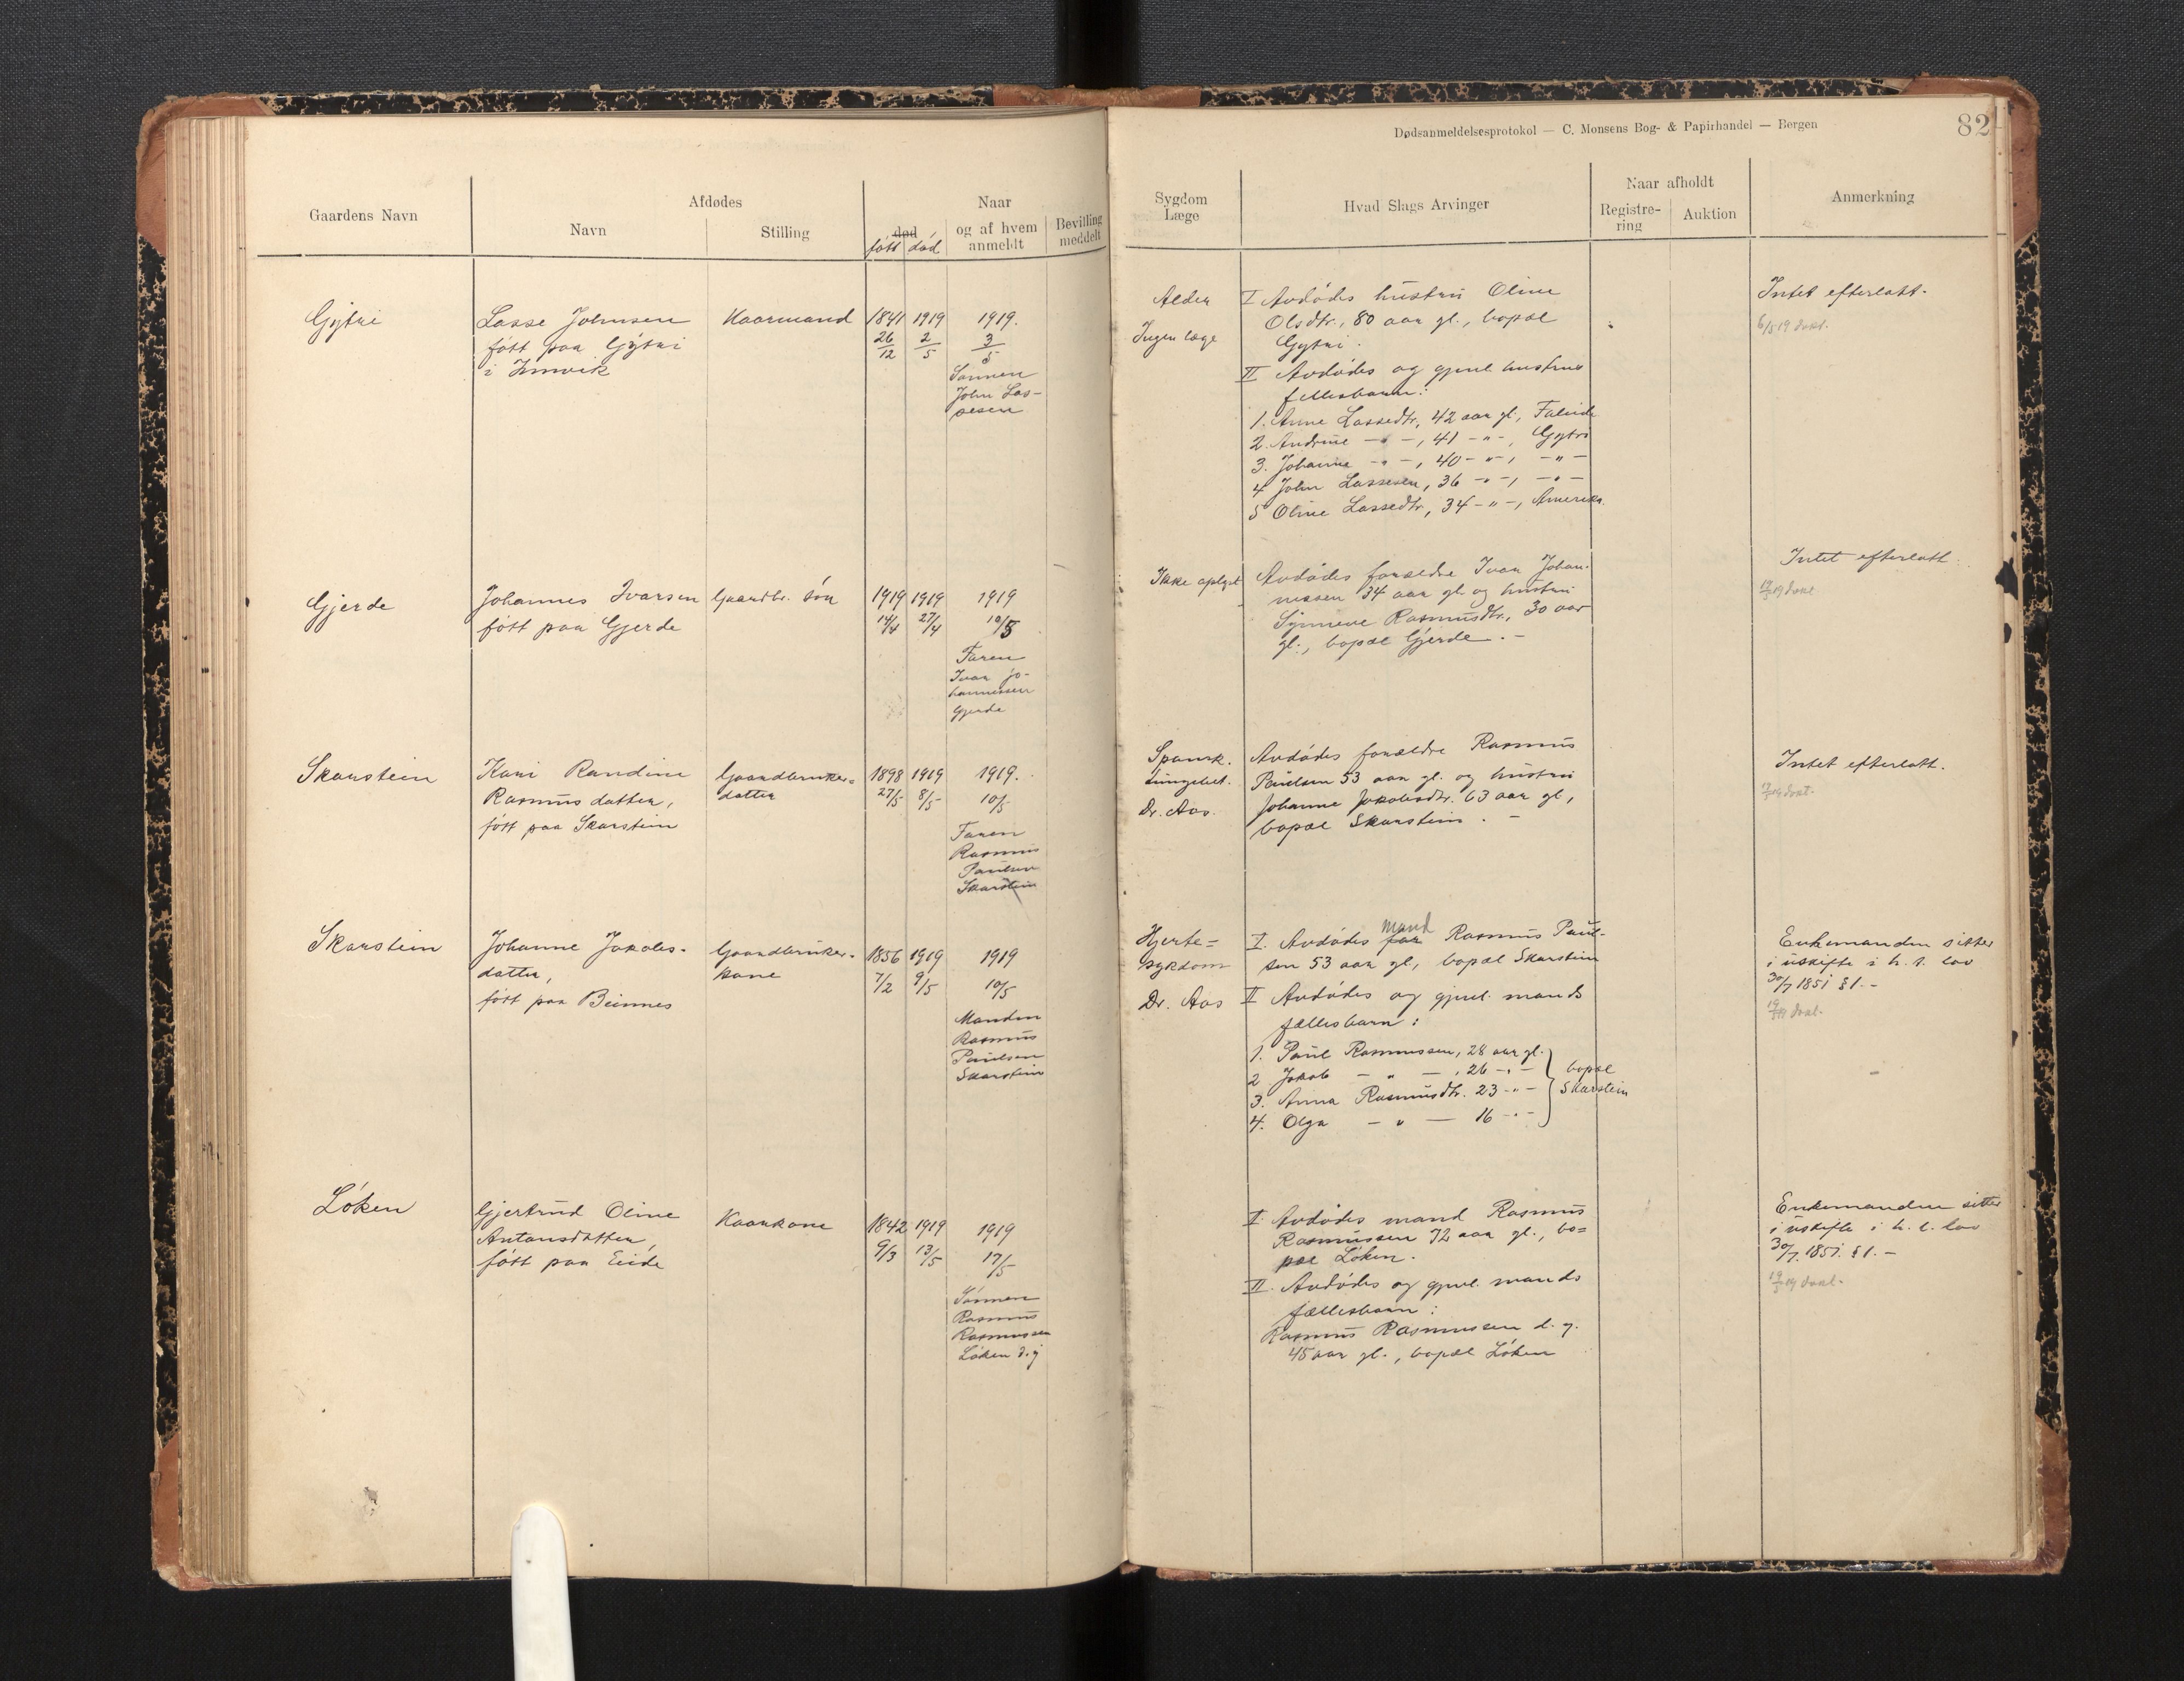 Dødsanmeldelsesprotokol — C. Monsens Bog- & Papirhandel — Bergen
82
Gaardens Navn
Afdødes
Navn
Stilling
Naar
død
født
død
og af hvem
anmeldt
Bevilling
meddelt
Sygdom
Læge
Hvad Slags Arvinger
Naar afholdt
Registre-
ring
Auktion
Anmerkning
Gytri
Lasse Johnsen
født paa Gytri
i Innvik
Kaarmand
1841
26/12
1919
2/5
1919.
3/5
Sønnen
John Las-
sesen
Alder
Ingen læge
I Avdødes hustru Oline
Olsdtr., 80 aar gl., bopæl
Gytri.
II Avdødes og gjenl. hustrus
fellesbarn:
1. Anne Lassedtr, 42 aar gl., Faleide
2. Andrine — " —, 41 - " -, Gytri
3. Johanne - " -, 40 - " -, - " -
4 John Lassesen, 36 - " -, - " -
5 Oline Lassedtr, 34 - " -, Amerika.
Intet efterlatt.
6/5 19 dokt.
Gjerde
Johannes Ivarsen
født paa Gjerde
Gaardbr. søn
1919
14/4
1919
27/4
1919
10/5
Faren
Ivar Jo-
hannessen
Gjerde
Ikke oplyst
Avdødes forældre Ivar Johan-
nessen 34 aar gl. og hustru
Synneve Rasmusdtr., 30 aar
gl., bopæl Gjerde. —
Intet efterlatt.
Skarstein
Kari Randine
Rasmusdatter,
født paa Skarstein
Gaardbruker=
datter
1898
27/5
1919
8/5
1919.
10/5
Faren
Rasmus
Paulsen
Skarstein
Spansk.
lungebet.
Dr. Aas.
Avdødes forældre Rasmus
Paulsen 53 aar gl. og hustru
Johanne Jakobsdtr. 63 aar gl,
bopæl Skarstein. —
Intet efterlatt.
Skarstein
Johanne Jakobs-
datter,
født paa Beinnes
Gaardbruker-
kone
1856
7/2
1919
9/5
1919
10/5
Manden
Rasmus
Paulsen
Skarstein
Hjerte=
sykdom
Dr. Aas
I. Avdødes far mand Rasmus Paul-
sen 53 aar gl, bopæl Skarstein
II Avdødes og gjenl. mands
fællesbarn:
1. Paul Rasmussen, 28 aar gl.
2 Jakob — " —, 26 - " -
3. Anna Rasmusdtr. 23 - " -
4. Olga — " — 16 - " -
bopæl
Skarstein
Enkemanden sitter
i uskifte i h. t. lov
30/7 1851 §1. -
Løken
Gjertrud Oline
Antonsdatter,
født paa Eide
Kaarkone
1842
9/3
1919
13/5
1919
17/5
Sønnen
Rasmus
Rasmussen
Løken d. y
I Avdødes mand Rasmus
Rasmussen 72 aar gl., bo=
pæl Løken.
II. Avdødes og gjenl. mands
fællesbarn:
Rasmus Rasmussen d. y.
45 aar gl., bopæl Løken
Enkemanden sitter
i uskifte i h. t. lov
30/7 1851. §1. —